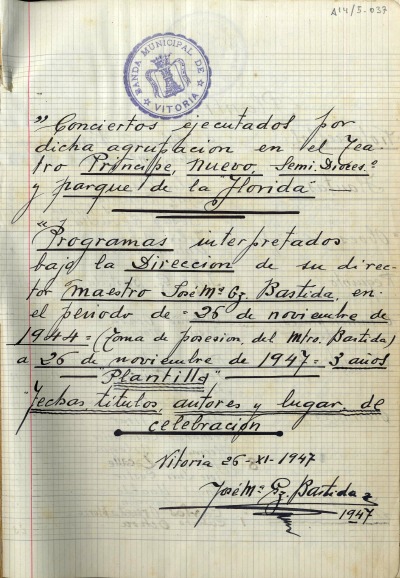 A14/5-037
BANDA MUNICIPAL DE
VITORIA
"Conciertos ejecutados por
dicha agrupacion en el Tea-
tro Principe, Nuevo, Semi. Dioces.º
y parque de la Florida" —
"Programas interpretados
bajo la Direccion de su direc-
tor maestro José Mª Gz. Bastida, en
el periodo de = 26 de noviembre de
1944 = (Toma de posesion, del Mtro. Bastida)
a 26 de noviembre de 1947 = 3 años
"Plantilla"
"Fechas titulos, autores y lugar, de
celebración
Vitoria 26-XI-1947
José Mª Gz. Bastida
1947